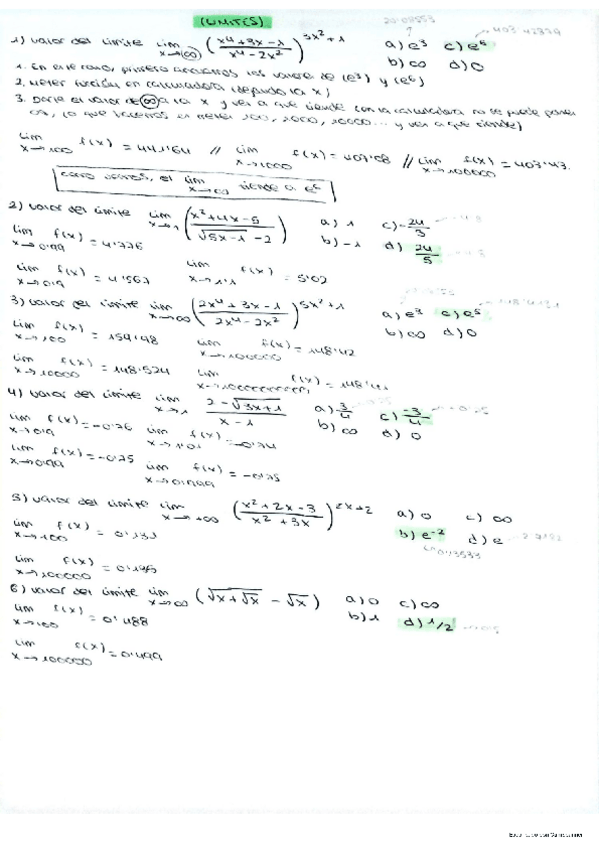 (LIMITES)
20'08553
403'42879
1) Valor del límite lim x→∞ ((x⁴+3x-1)/(x⁴-2x²))^(3x²+1) a) e³ c) e⁶
b) ∞ d) 0
1. En este caso, primero los valores de (e³) y (e⁶)
2. Meter función en calculadora (dejando la x)
3. Darle el valor de ∞ a la x y ver a que tiende con la calculadora no se puede poner
∞, lo que hacemos es meter 100, 1000, 10000... y ver a que tiende)
lim x→100 f(x) = 441'64 // lim x→1000 f(x) = 403'08 // lim x→100000 f(x) = 403'43.
como vemos, el lim x→∞ tiende a e⁶
2) Valor del límite lim x→1 ((x²+4x-5)/(√(5x-1) -2)) a) 1 c) -24/3
b) -1 d) 24/5
lim x→0'99 f(x) = 4'776
lim x→0'9 f(x) = 4'567 lim x→1'1 f(x) = 5'02
3) Valor del límite lim x→∞ ((2x⁴+3x-1)/(2x⁴-2x²))^(5x²+1) a) e² c) e⁵
b) ∞ d) 0
148'4131
lim x→100 f(x) = 154'48 lim x→100000 f(x) = 148'42
lim x→10000 f(x) = 148'524 f(x) = 148'41
4) Valor del límite lim x→1 (2-√(3x+1))/(x-1) a) 3/4 c) -3/4
b) ∞ d) 0
lim x→0'9 f(x) = -0'76 lim x→1'01 f(x) = -0'74
lim x→0'99 f(x) = -0'75 lim x→0'999 f(x) = -0'75
5) Valor del límite lim x→+∞ ((x²+2x-3)/(x²+3x))^(2x+2) a) 0 c) ∞
b) e⁻² d) e
lim x→100 f(x) = 0'131
lim x→100000 f(x) = 0'135
6) Valor del límite lim x→∞ (√(x+√x) - √x) a) 0 c) ∞
b) 1 d) 1/2
lim x→100 f(x) = 0'488
lim x→100000 f(x) = 0'499